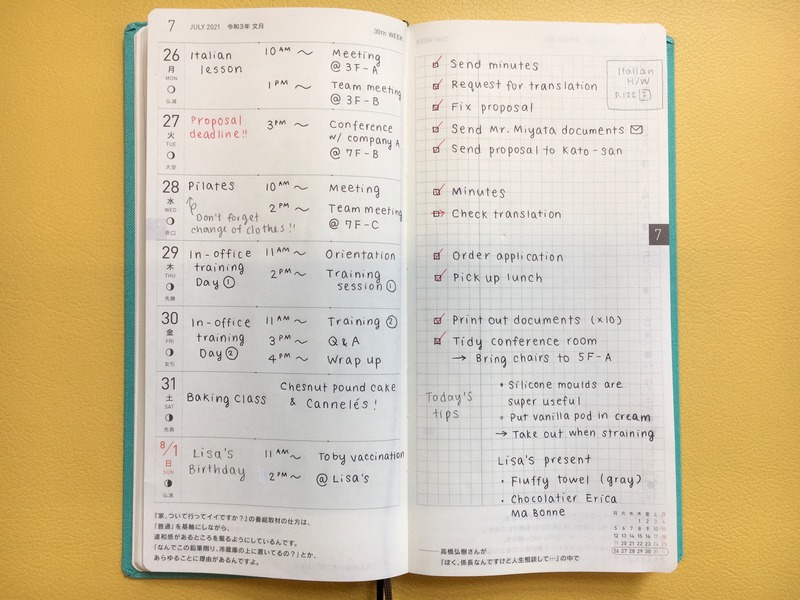 7 JULY 2021 令和3年 文月
30th WEEK
26 月 MON 仏滅
Italian lesson
10 AM ~ Meeting @ 3F-A
1 PM ~ Team meeting @ 3F-B
27 火 TUE 大安
Proposal deadline!!
3 PM ~ Conference w/ company A @ 7F-B
28 水 WED 赤口
Pilates
Don't forget change of clothes!!
10 AM ~ Meeting
2 PM ~ Team meeting @ 7F-C
29 木 THU 先勝
In-office training Day ①
11 AM ~ Orientation
2 PM ~ Training session ①
30 金 FRI 友引
In-office training Day ②
11 AM ~ Training ②
3 PM ~ Q & A
4 PM ~ Wrap up
31 土 SAT 先負
Baking class
Chesnut pound cake & Cannelés!
8/1 日 SUN 仏滅
Lisa's Birthday
11 AM ~ Toby vaccination
2 PM ~ @ Lisa's
『家、ついて行ってイイですか?』の番組取材の仕方は、
「普通」を基軸にしながら、
違和感があるところを掘るようにしているんです。
「なんでこの鉛筆削り、冷蔵庫の上に置いてるの?」とか、
あらゆることに理由があるんですよ。
Send minutes
Request for translation
Fix proposal
Send Mr. Miyata documents
Send proposal to Kato-san
Italian
H/W
p.122
Minutes
Check translation
7
Order application
Pick up lunch
Print out documents (×10)
Tidy conference room
→ Bring chairs to 5F-A
Today's tips
• Silicone moulds are
super useful
• Put vanilla pod in cream
→ Take out when straining
Lisa's present
• Fluffy towel (gray)
• Chocolatier Erica
Ma Bonne
月 火 水 木 金 土 日
1 2 3 4
5 6 7 8 9 10 11
12 13 14 15 16 17 18
19 20 21 22 23 24 25
26 27 28 29 30 31
——高橋弘樹さんが
『ぼく、係長なんですけど人生相談して…』の中で